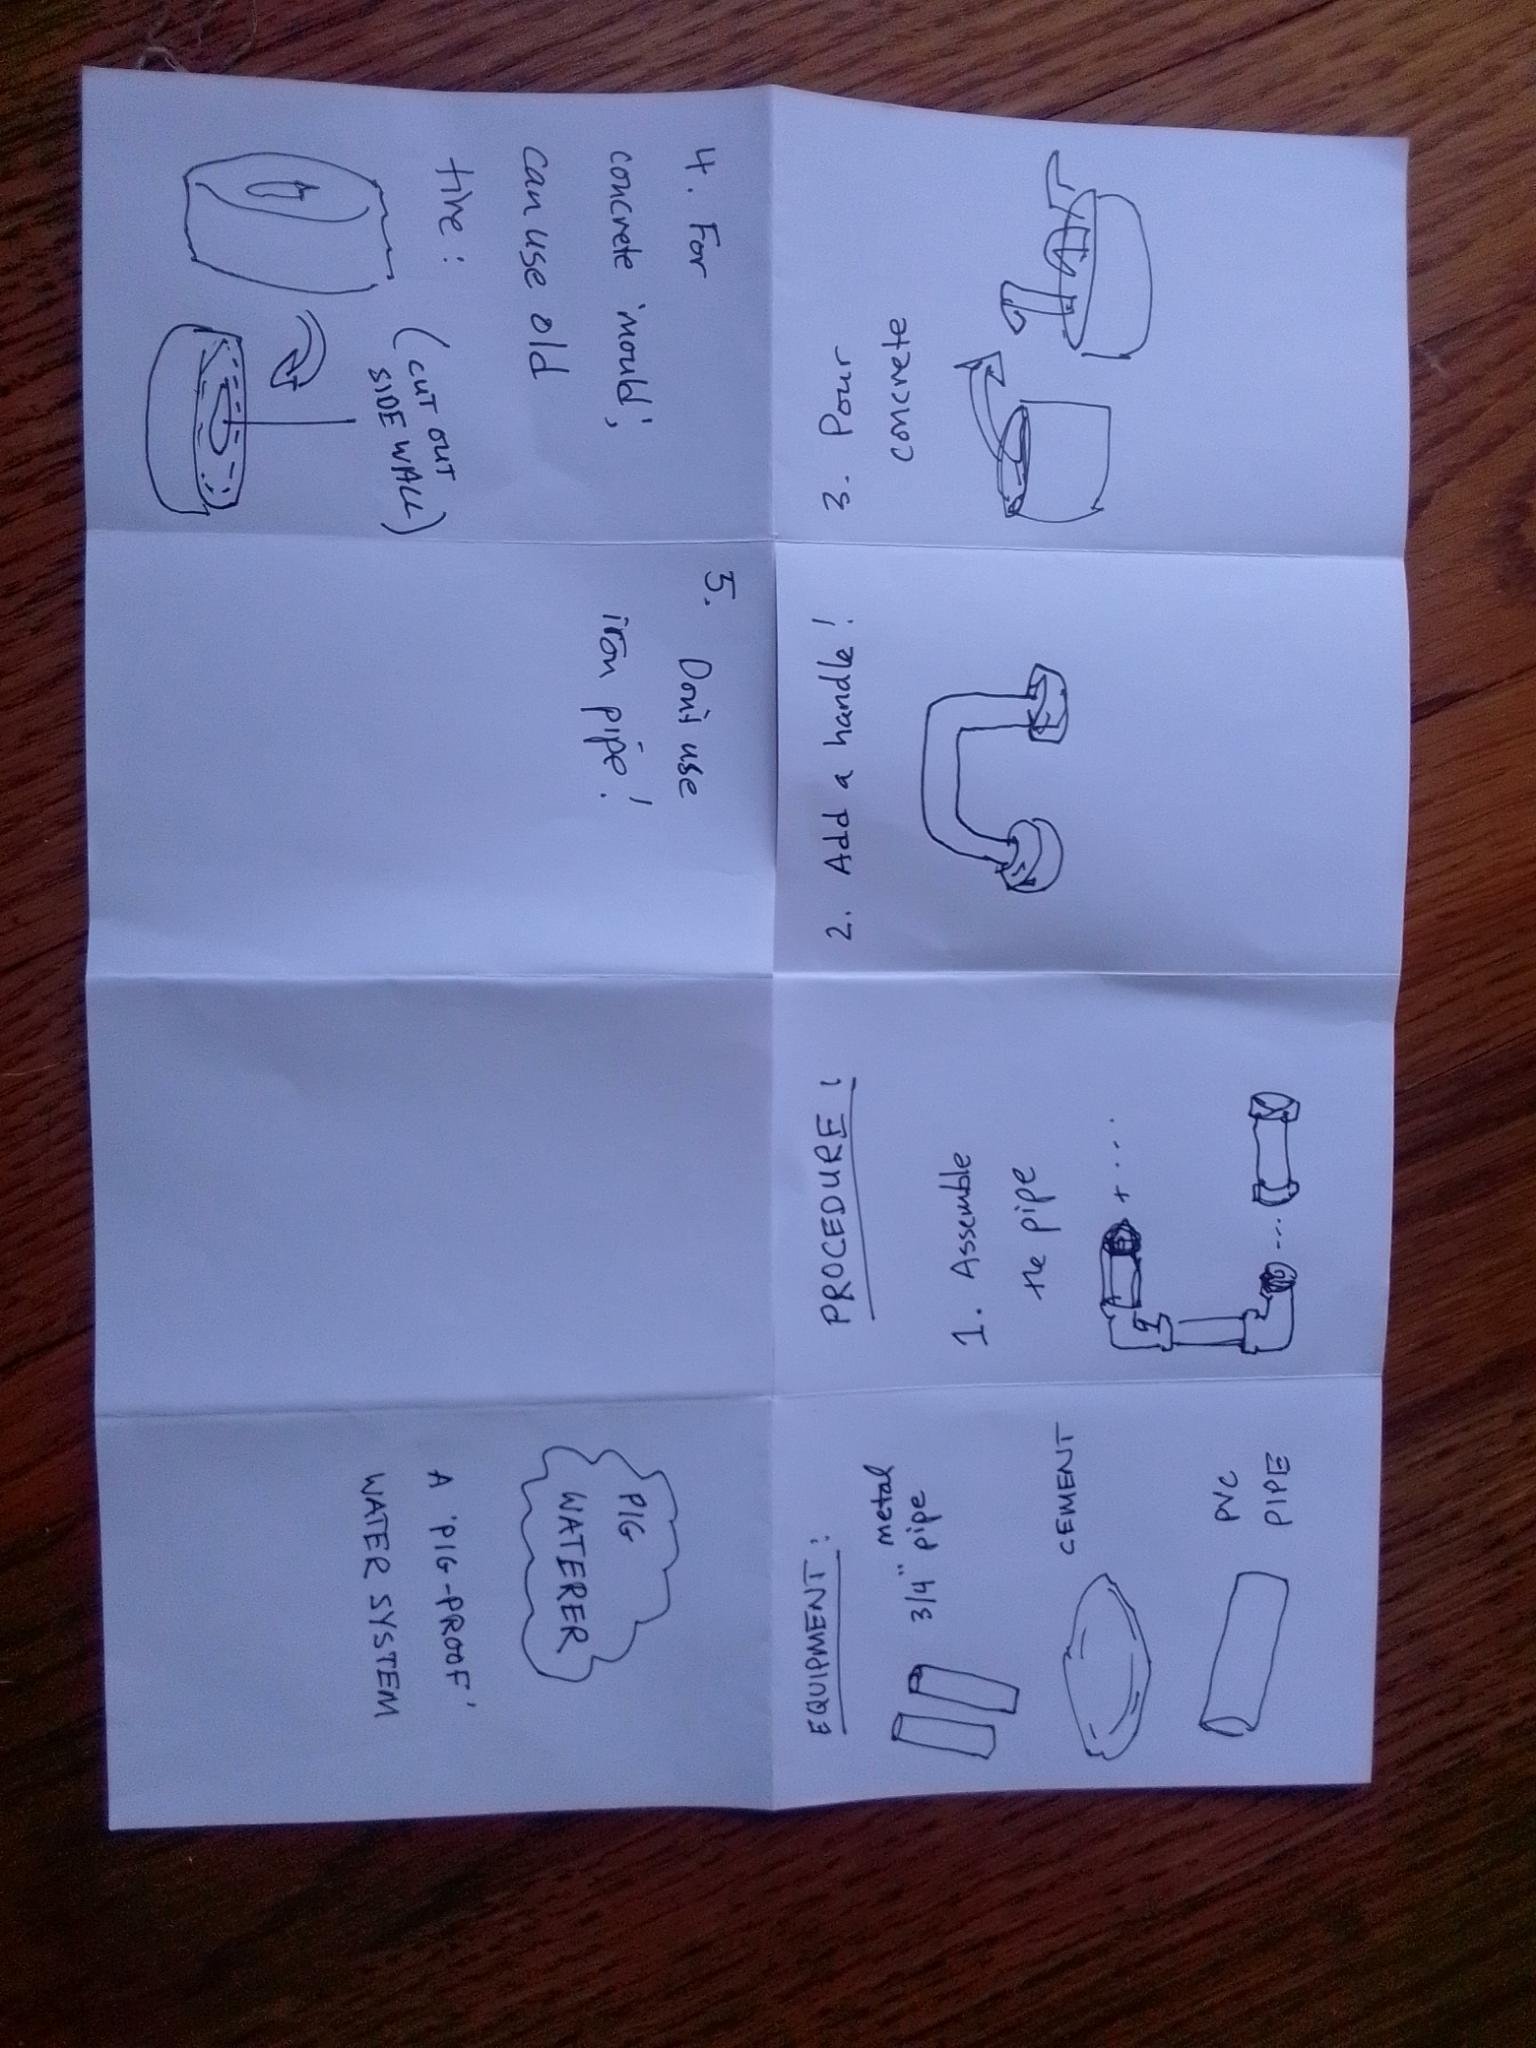 PIG
WATERER
A 'PIG-PROOF'
WATER SYSTEM
EQUIPMENT:
metal
3/4" pipe
CEMENT
PVC
PIPE
PROCEDURE:
1. Assemble
the pipe
+ ....
...
2. Add a handle!
3. Pour
concrete
4. For
concrete 'mould',
can use old
tire:
(CUT OUT
SIDE WALL)
5. Don't use
iron pipe!